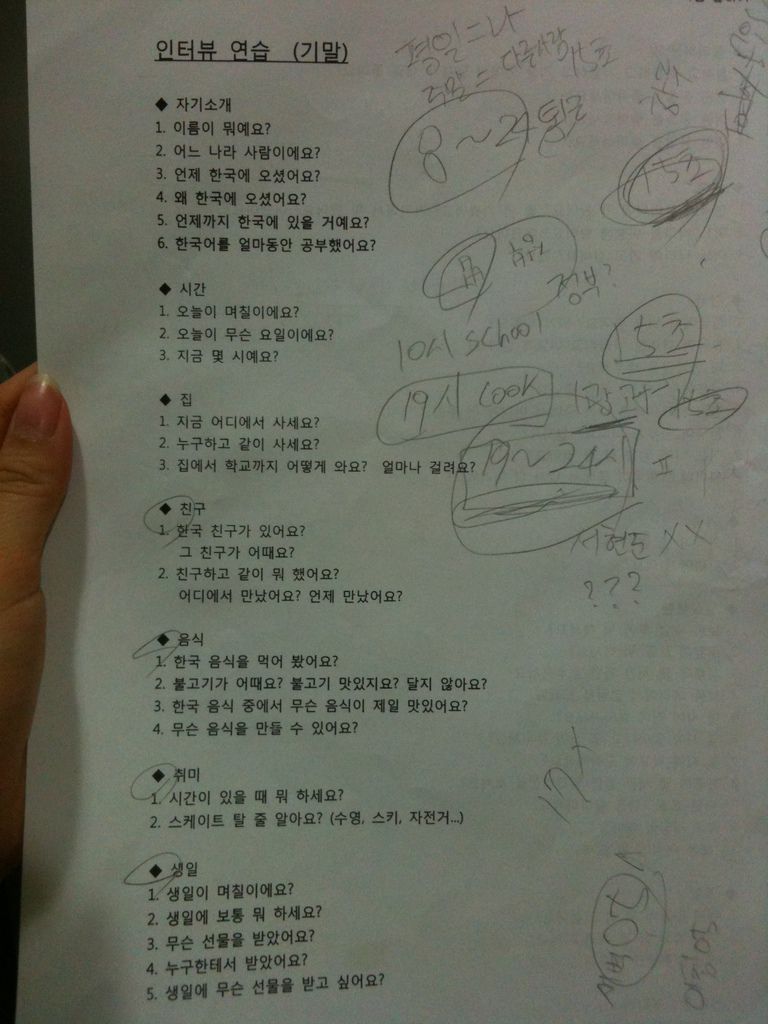 인터뷰 연습 (기말)
평일=나
주말=다른사람 15초
8~24 퇴근
15초
◆ 자기소개
1. 이름이 뭐예요?
2. 어느 나라 사람이에요?
3. 언제 한국에 오셨어요?
4. 왜 한국에 오셨어요?
5. 언제까지 한국에 있을 거예요?
6. 한국어를 얼마동안 공부했어요?
◆ 시간
1. 오늘이 며칠이에요?
2. 오늘이 무슨 요일이에요?
3. 지금 몇 시예요?
정부?
10시 school
15초
◆ 집
1. 지금 어디에서 사세요?
2. 누구하고 같이 사세요?
3. 집에서 학교까지 어떻게 와요? 얼마나 걸려요?
19시 cook
15초
19~24시
◆ 친구
1. 한국 친구가 있어요?
그 친구가 어때요?
2. 친구하고 같이 뭐 했어요?
어디에서 만났어요? 언제 만났어요?
서현돈 XX
???
◆ 음식
1. 한국 음식을 먹어 봤어요?
2. 불고기가 어때요? 불고기 맛있지요? 달지 않아요?
3. 한국 음식 중에서 무슨 음식이 제일 맛있어요?
4. 무슨 음식을 만들 수 있어요?
◆ 취미
1. 시간이 있을 때 뭐 하세요?
2. 스케이트 탈 줄 알아요? (수영, 스키, 자전거...)
17+
◆ 생일
1. 생일이 며칠이에요?
2. 생일에 보통 뭐 하세요?
3. 무슨 선물을 받았어요?
4. 누구한테서 받았어요?
5. 생일에 무슨 선물을 받고 싶어요?